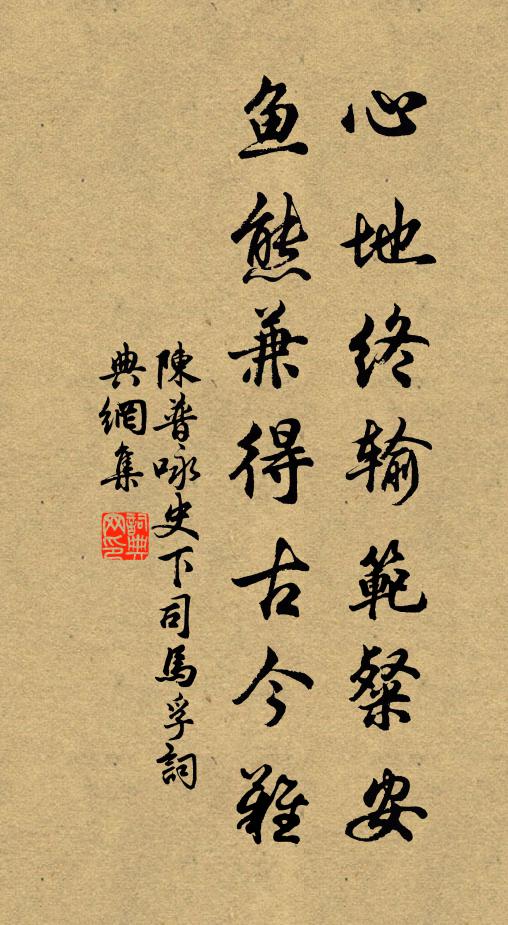 心地终输範粲安
鱼熊兼得古今難
陳普咏史下司馬孚詞
典網集
詞典网印